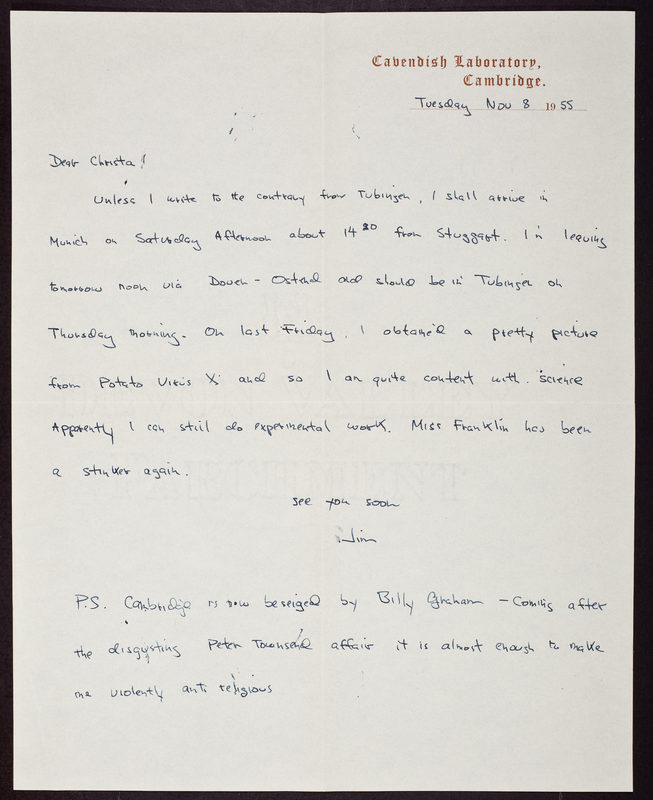 Cavendish Laboratory,
Cambridge.
Tuesday Nov 8 1955
Dear Christa!
Unless I write to the contrary from Tubingen, I shall arrive in
Munich on Saturday Afternoon about 14 20 from Stuggart. I'm leaving
tomorrow noon via Dover - Ostend and should be in Tubingen on
Thursday morning. On last Friday, I obtained a pretty picture
from Potato Virus X and so I am quite content with science
Apparently I can still do experimental work. Miss Franklin has been
a stinker again.
see you soon
Jim
P.S. Cambridge is now beseiged by Billy Graham - Coming after
the disgusting Peter Townsend affair it is almost enough to make
me violently anti religious